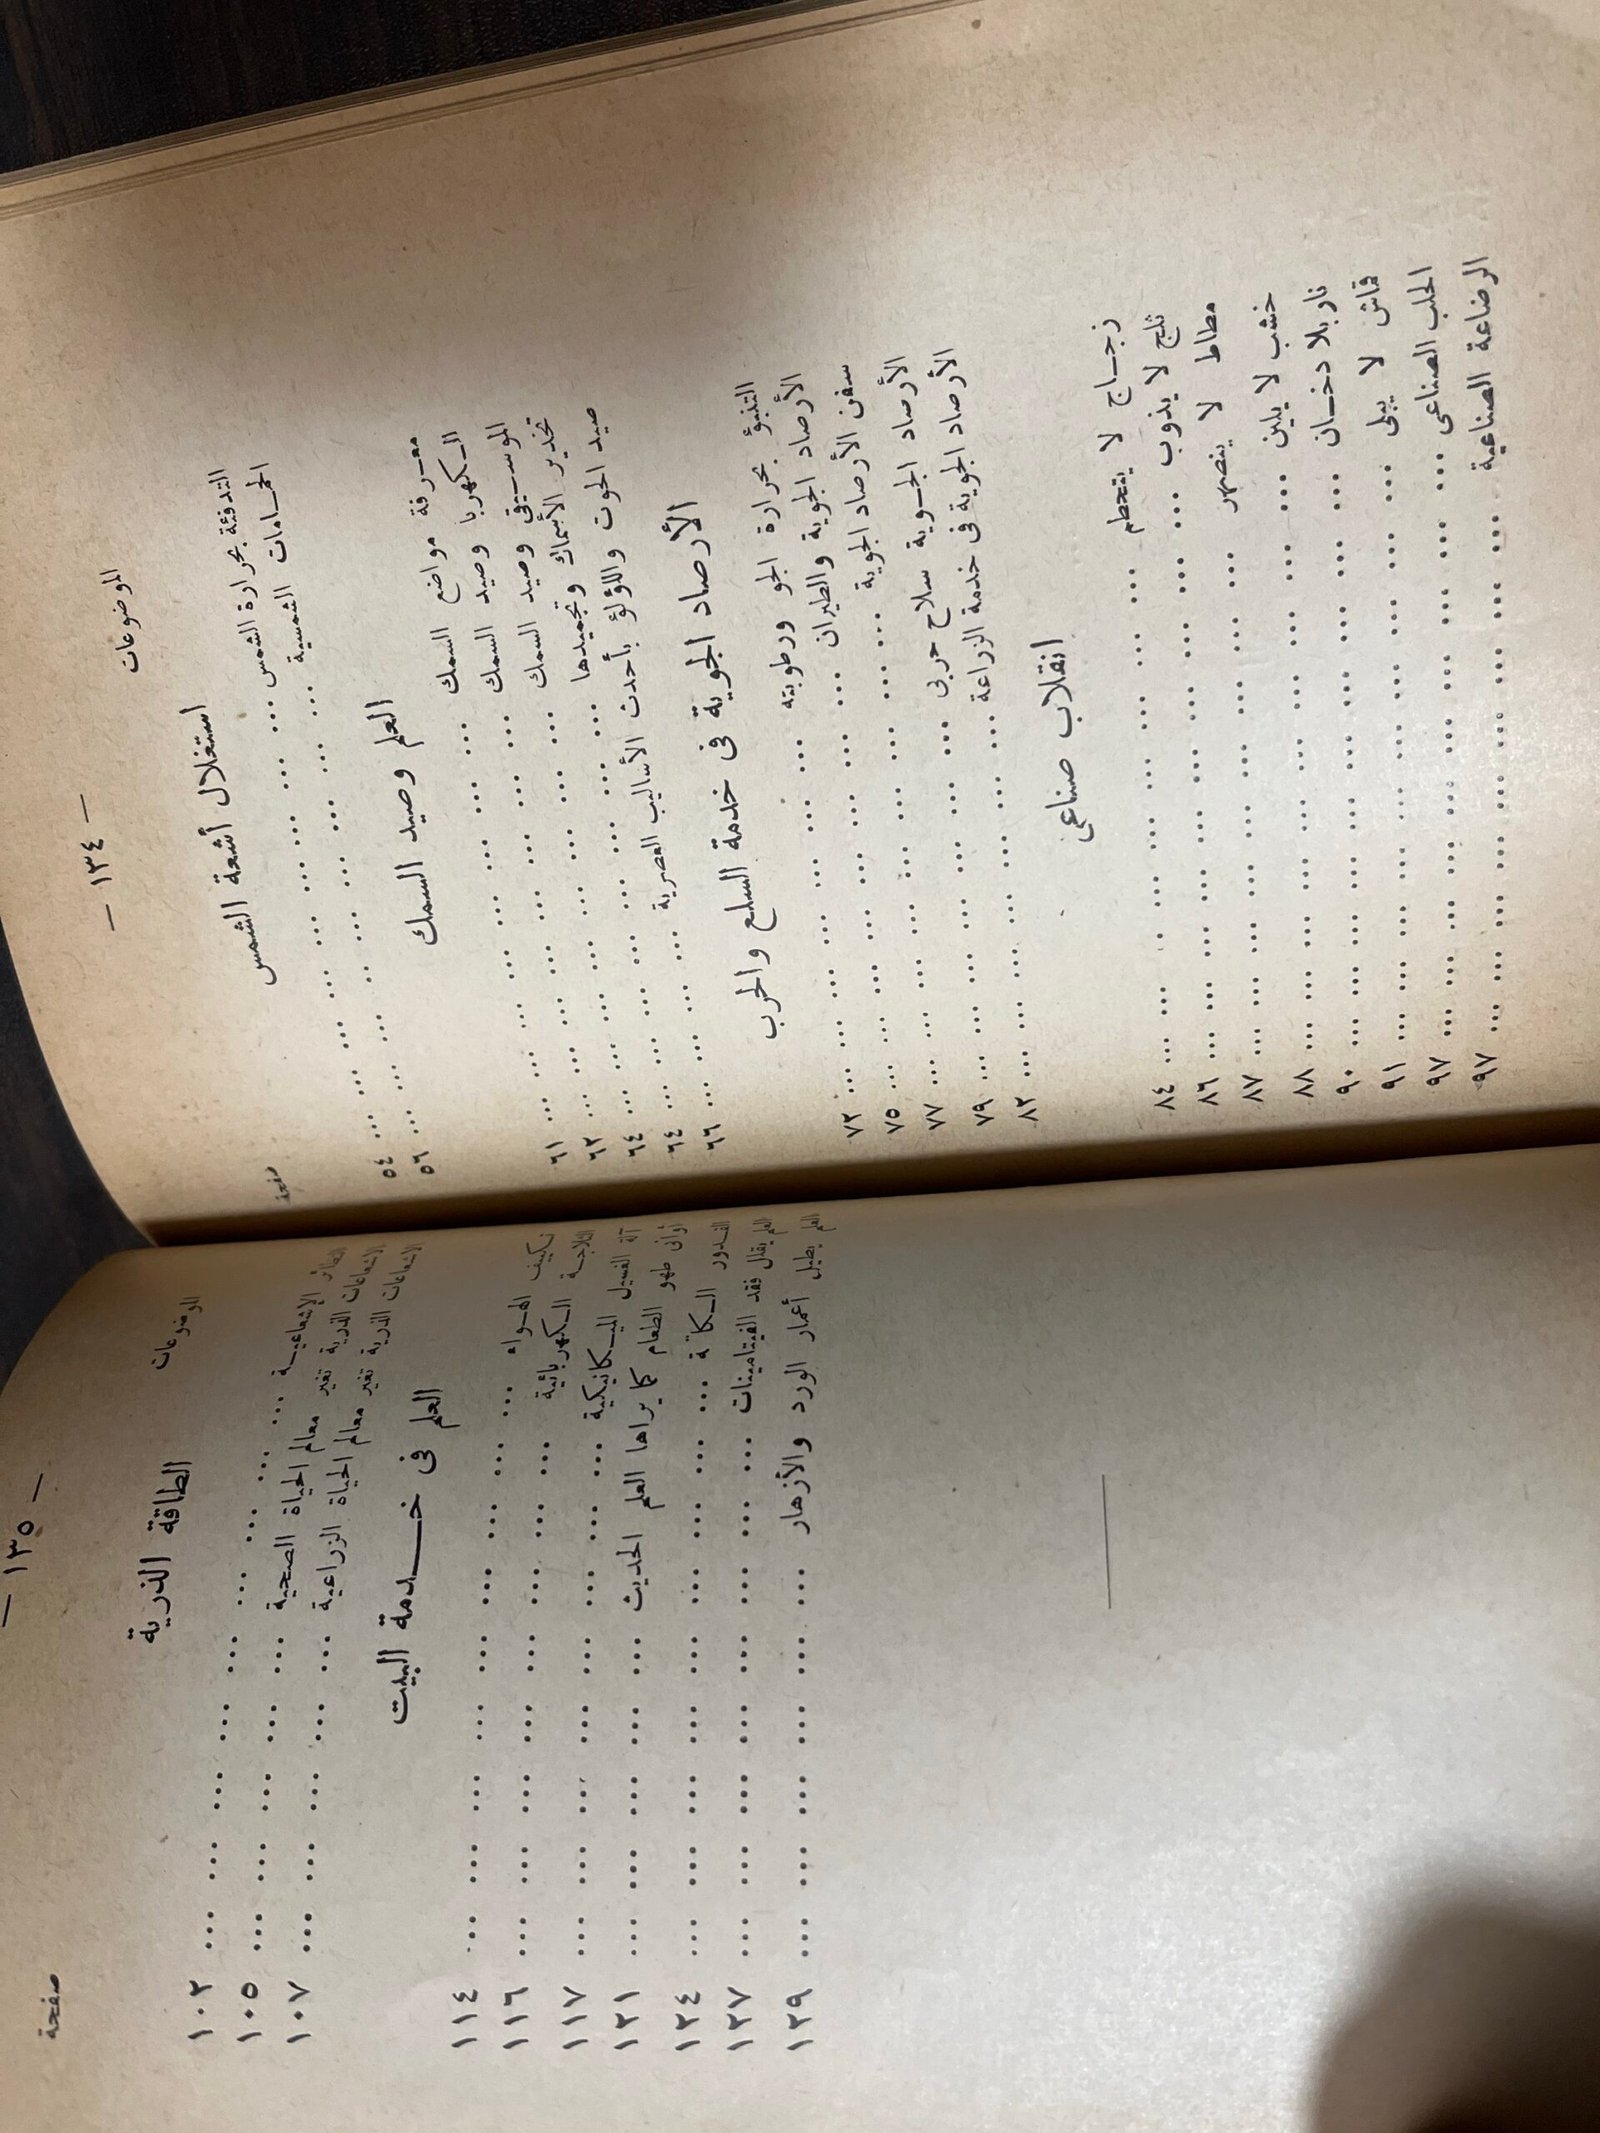 — ١٣٤ —
الموضوعات
صفحة
استغلال أشعة الشمس
التدفئة بحرارة الشمس ... ... ... ... ... ... ... ... ٥٤
الحمامات الشمسية ... ... ... ... ... ... ... ... ٥٦
العلم وصيد السمك
معرفة مواضع السمك ... ... ... ... ... ... ... ٦١
الكهربا وصيد السمك ... ... ... ... ... ... ... ٦٢
الموسيقى وصيد السمك ... ... ... ... ... ... ... ٦٤
تخدير الأسماك وتجميدها ... ... ... ... ... ... ... ٦٤
صيد الحوت واللؤلؤ بأحدث الأساليب العصرية ... ... ... ... ٦٦
الأرصاد الجوية فى خدمة السلع والحرب
التنبؤ بحرارة الجو ورطوبته ... ... ... ... ... ... ٧٢
الأرصاد الجوية والطيران ... ... ... ... ... ... ... ٧٥
سفن الأرصاد الجوية ... ... ... ... ... ... ... ... ٧٧
الأرصاد الجوية سلاح حربى ... ... ... ... ... ... ... ٧٩
الأرصاد الجوية فى خدمة الزراعة ... ... ... ... ... ... ٨٢
انقلاب صناعى
زجاج لا يتحطم ... ... ... ... ... ... ... ... ٨٤
ثلج لا يذوب ... ... ... ... ... ... ... ... ... ٨٦
مطاط لا ينصهر ... ... ... ... ... ... ... ... ٨٧
خشب لا يلين ... ... ... ... ... ... ... ... ... ٨٨
نار بلا دخان ... ... ... ... ... ... ... ... ... ٩٠
قماش لا يبلى ... ... ... ... ... ... ... ... ... ٩١
الحلب الصناعى ... ... ... ... ... ... ... ... ... ٩٧
الرضاعة الصناعية ... ... ... ... ... ... ... ... ٩٧
— ١٣٥ —
الموضوعات
صفحة
الطاقة الذرية
النظائر الإشعاعية ... ... ... ... ... ... ... ... ... ١٠٢
الاشعاعات الذرية تغير معالم الحياة الصحية ... ... ... ... ... ١٠٥
الاشعاعات الذرية تغير معالم الحياة الزراعية ... ... ... ... ... ١٠٧
العلم فى خدمة البيت
تكييف الهواء ... ... ... ... ... ... ... ... ... ١١٤
الثلاجة الكهربائية ... ... ... ... ... ... ... ... ١١٦
آلة الغسيل الميكانيكية ... ... ... ... ... ... ... ... ١١٧
أوانى طهو الطعام كما يراها العلم الحديث ... ... ... ... ... ١٢١
القدور الكاتمة ... ... ... ... ... ... ... ... ... ١٢٤
العلم يقلل فقد الفيتامينات ... ... ... ... ... ... ... ... ١٢٧
العلم يطيل أعمار الورد والأزهار ... ... ... ... ... ... ١٢٩